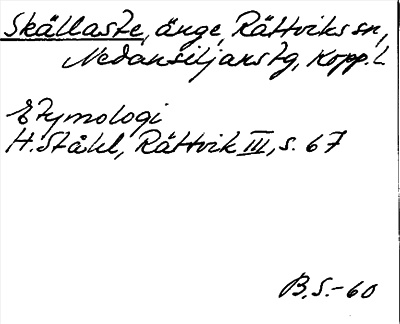 Skällaste, änge, Rättviks sn,
Nedansiljanstg, Kopp. L
Etymologi
H. Ståhl, Rättvik III, s. 67
B.S.-60